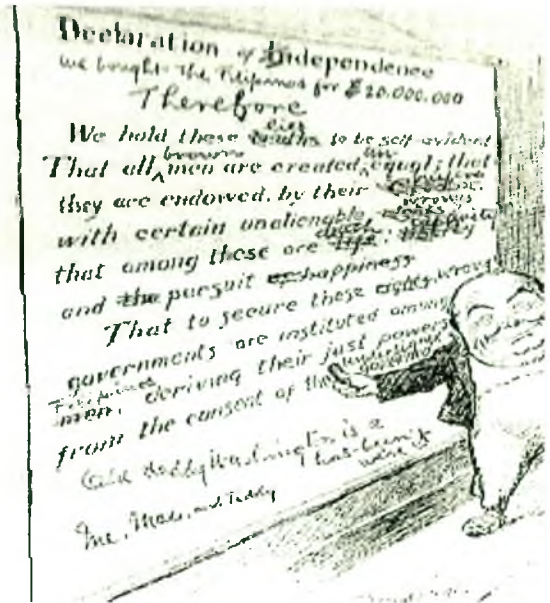 Declaration of Independence
We bought the Filipinos for $20.000.000
Therefore
We hold these lies truths to be self-evident
That all brown men are created un equal; that
they are endowed, by their
with certain unalienable wrongs
that among these are death life,
and the pursuit of happiness
That to secure these rights wrongs
governments are instituted among
Filipinos men, deriving their just powers
from the consent of the governed
Old daddy Washington is a
"has-been"
Me, Mac, and Teddy